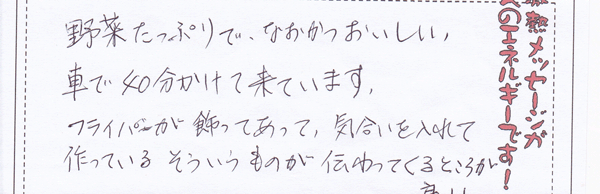 野菜たっぷりで、なおかつおいしい,
車で40分かけて来ています,
フライパーが飾ってあって,気合いを入れて
作っている そういうものが伝わってくるところが
熱メッセージが
のエネルギーです!